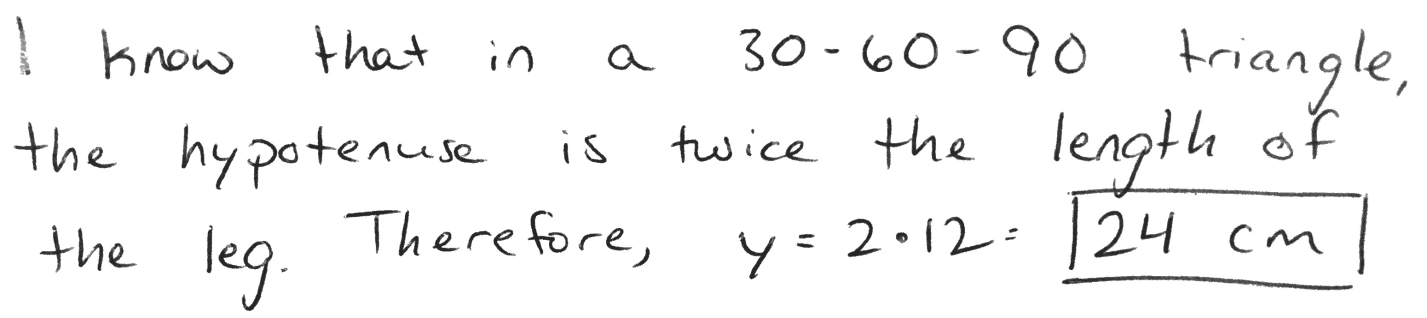 I know that in a 30-60-90 triangle,
the hypotenuse is twice the length of
the leg. Therefore, y = 2·12 = 24 cm